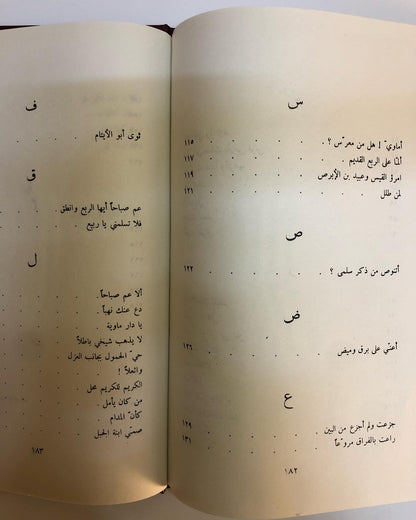 س
أماويّ ! هل من معرّس ؟ . . . . . ١١٥
ألمّا على الربع القديم . . . . . ١١٧
امرؤ القيس وعبيد بن الإبرص . . . . ١١٩
لمن طلل . . . . . . . ١٢١
ص
أتنوص من ذكر سلمى ؟ . . . . . ١٢٢
ض
أعنّي على برق وميض . . . . . ١٢٦
ع
جزعت ولم أجزع من البين . . . . ١٢٩
راعت بالفراق مروّعاً . . . . . ١٣١
١٨٢
ف
ثوى أبو الأيتام . . . .
ق
عم صباحاً أيها الربع وانطق . .
فلا تسلمني يا ربيع . . .
ل
ألا عم صباحاً . . . . .
دع عنك نهباً . . . . .
يا دار ماوية . . . . .
لا يذهب شيخي باطلاً . . .
حيّ الحمول بجانب العزل . .
والعلا ! . . . . .
الكريم للكريم محل . . . .
من كان يأمل . . . . .
كأنّ المدام . . . . .
صمتي ابنة الجبل . . . .
١٨٣